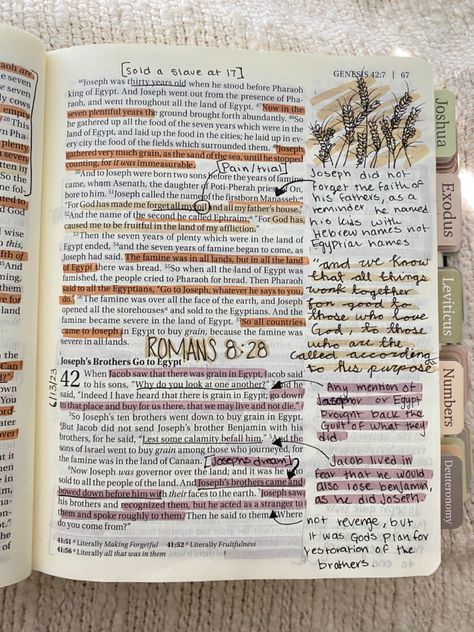 [sold a slave at 17]
GENESIS 42:7 | 67
46Joseph was thirty years old when he stood before Pharaoh
king of Egypt. And Joseph went out from the presence of Pha-
raoh, and went throughout all the land of Egypt. 47Now in the
seven plentiful years the ground brought forth abundantly. 48So
he gathered up all the food of the seven years which were in the
land of Egypt, and laid up the food in the cities; he laid up in ev-
ery city the food of the fields which surrounded them. 49Joseph
gathered very much grain, as the sand of the sea, until he stopped
counting, for it was immeasurable.
[Pain/trial]
50And to Joseph were born two sons before the years of famine
came, whom Asenath, the daughter of Poti-Pherah priest of On,
bore to him. 51Joseph called the name of the firstborn Manasseh:a
"For God has made me forget all my toil and all my father's house."
52And the name of the second he called Ephraim:a "For God has
caused me to be fruitful in the land of my affliction."
53Then the seven years of plenty which were in the land of
Egypt ended, 54and the seven years of famine began to come, as
Joseph had said. The famine was in all lands, but in all the land
of Egypt there was bread. 55So when all the land of Egypt was
famished, the people cried to Pharaoh for bread. Then Pharaoh
said to all the Egyptians, "Go to Joseph; whatever he says to you,
do." 56The famine was over all the face of the earth, and Joseph
opened all the storehousesa and sold to the Egyptians. And the
famine became severe in the land of Egypt. 57So all countries
came to Joseph in Egypt to buy grain, because the famine was
severe in all lands.
ROMANS 8:28
Joseph's Brothers Go to Egypt
6/13/23
42 When Jacob saw that there was grain in Egypt, Jacob said
to his sons, "Why do you look at one another?" 2And he
said, "Indeed I have heard that there is grain in Egypt; go down
to that place and buy for us there, that we may live and not die."
3So Joseph's ten brothers went down to buy grain in Egypt.
4But Jacob did not send Joseph's brother Benjamin with his
brothers, for he said, "Lest some calamity befall him." 5And the
sons of Israel went to buy grain among those who journeyed, for
the famine was in the land of Canaan.
[Josephs dream]
6Now Joseph was governor over the land; and it was he who
sold to all the people of the land. And Joseph's brothers came and
bowed down before him with their faces to the earth. 7Joseph saw
his brothers and recognized them, but he acted as a stranger to
them and spoke roughly to them. Then he said to them, "Where
do you come from?"
41:51 a Literally Making Forgetful 41:52 a Literally Fruitfulness
41:56 a Literally all that was in them
Joseph did not
forget the faith of
his fathers, as a
reminder he named
his kids with
Hebrew names not
Egyptian names
"and we know
that all things
work together
for good for
those who love
God, to those
who are the
called according
to his purpose"
Any mention of
or Egypt
brought back the
Guilt of what they
did.
Jacob lived in
fear that he would
also lose benjamin,
as he did Joseph
not revenge, but
it was Gods plan for
restoration of the
brothers.
Joshua
Exodus
Leviticus
Numbers
Deuteronomy